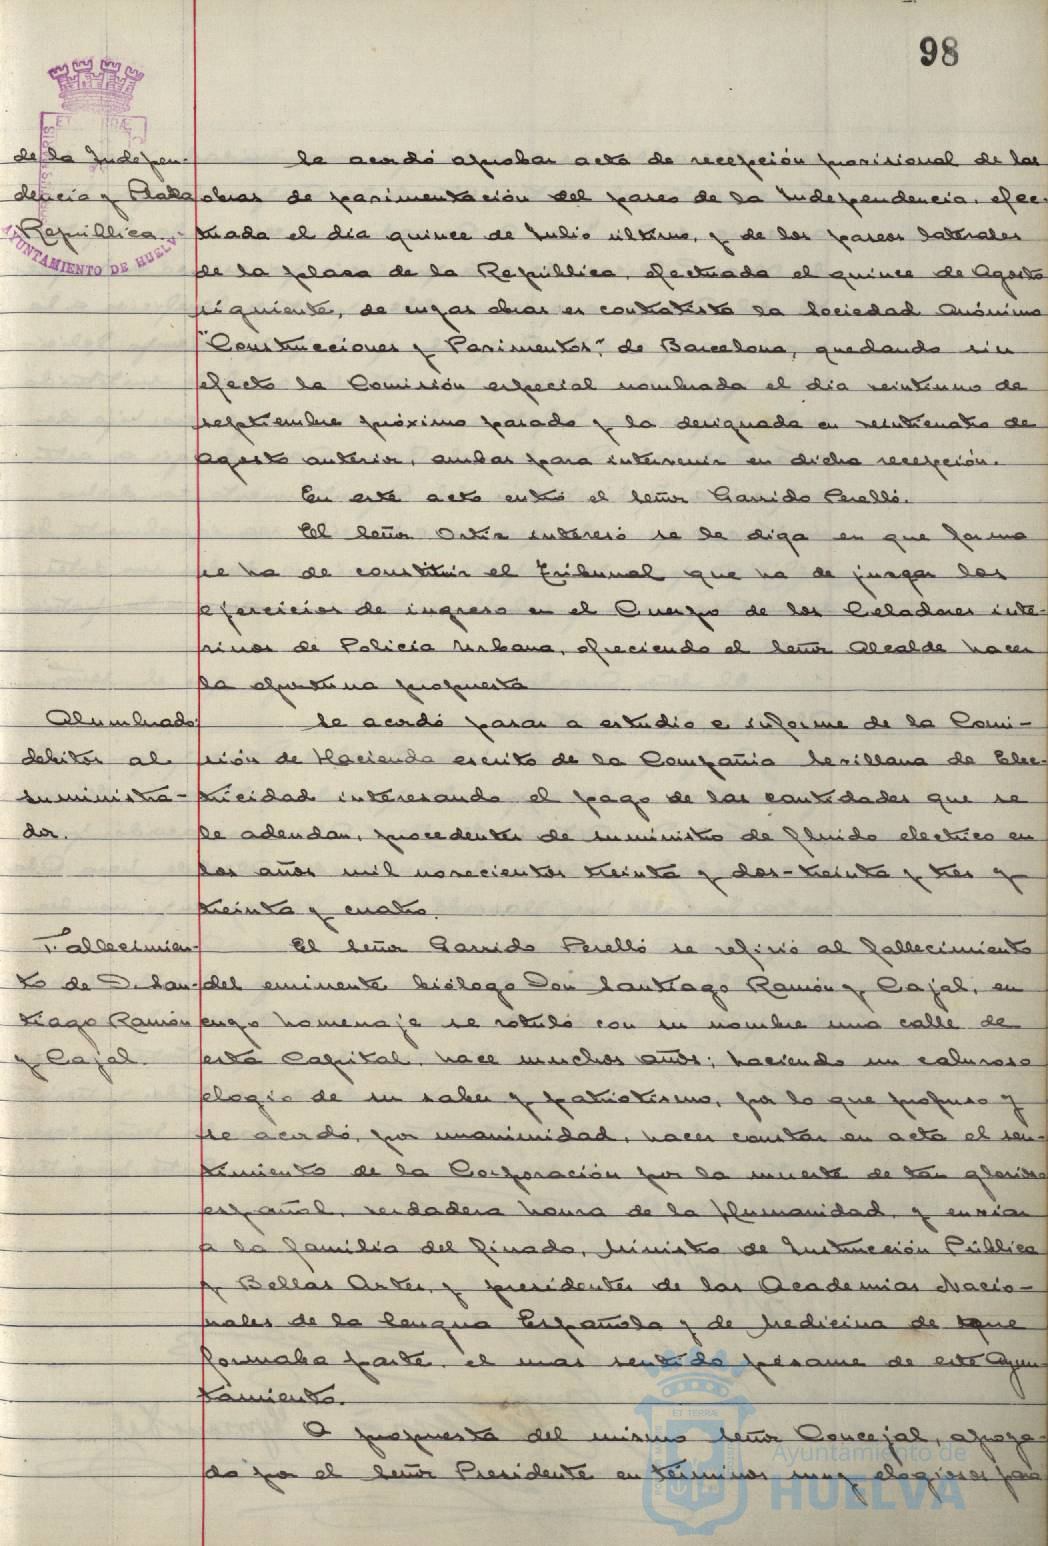 98
de la Indepen-
dencia y Plaza
República.
Se acordó aprobar acta de recepción provisional de las
obras de pavimentación del paseo de la Independencia, efec-
tuada el día quince de Julio último, y de los paseos laterales
de la plaza de la República, efectuada el quince de Agosto
siguiente, de cuyas obras es contratista la Sociedad Anónima
"Construcciones y Pavimentos", de Barcelona, quedando sin
efecto la Comisión especial nombrada el día veintiuno de
septiembre próximo pasado y la designada en veinticuatro de
Agosto anterior, ambas para intervenir en dicha recepción.
En este acto entró el señor Garrido Perelló.
El señor Ortiz interesó se le diga en que forma
se ha de constituir el Tribunal que ha de juzgar los
ejercicios de ingreso en el Cuerpo de los Celadores inte-
rinos de Policía Urbana, ofreciendo el señor Alcalde hacer
la oportuna propuesta
Alumbrado
debitos al
suministra-
dor.
Se acordó pasar a estudio e informe de la Comi-
sión de Hacienda escrito de la Compañía Sevillana de Elec-
tricidad interesando el pago de las cantidades que se
le adeudan, procedentes de suministro de fluido electrico en
los años mil novecientos treinta y dos-treinta y tres y
treinta y cuatro.
Fallecimien-
to de D. San-
tiago Ramón
y Cajal.
El señor Garrido Perelló se refirió al fallecimiento
del eminente biólogo Don Santiago Ramón y Cajal, en
cuyo homenaje se rotuló con su nombre una calle de
esta Capital, hace muchos años; haciendo un caluroso
elogio de su saber y patriotismo, por lo que propuso y
se acordó, por unanimidad, hacer constar en acta el sen-
timiento de la Corporación por la muerte de tan glorioso
español, verdadera honra de la Humanidad, y enviar
a la familia del finado, Ministro de Instrucción Pública
y Bellas Artes, y presidentes de las Academias Nacio-
nales de la Lengua Española y de Medicina de que
formaba parte, el mas sentido pésame de este Ayun-
tamiento.
A propuesta del mismo señor Concejal, apoya-
do por el señor Presidente en términos muy elogiosos para
AYUNTAMIENTO DE HUELVA
Ayuntamiento de
HUELVA